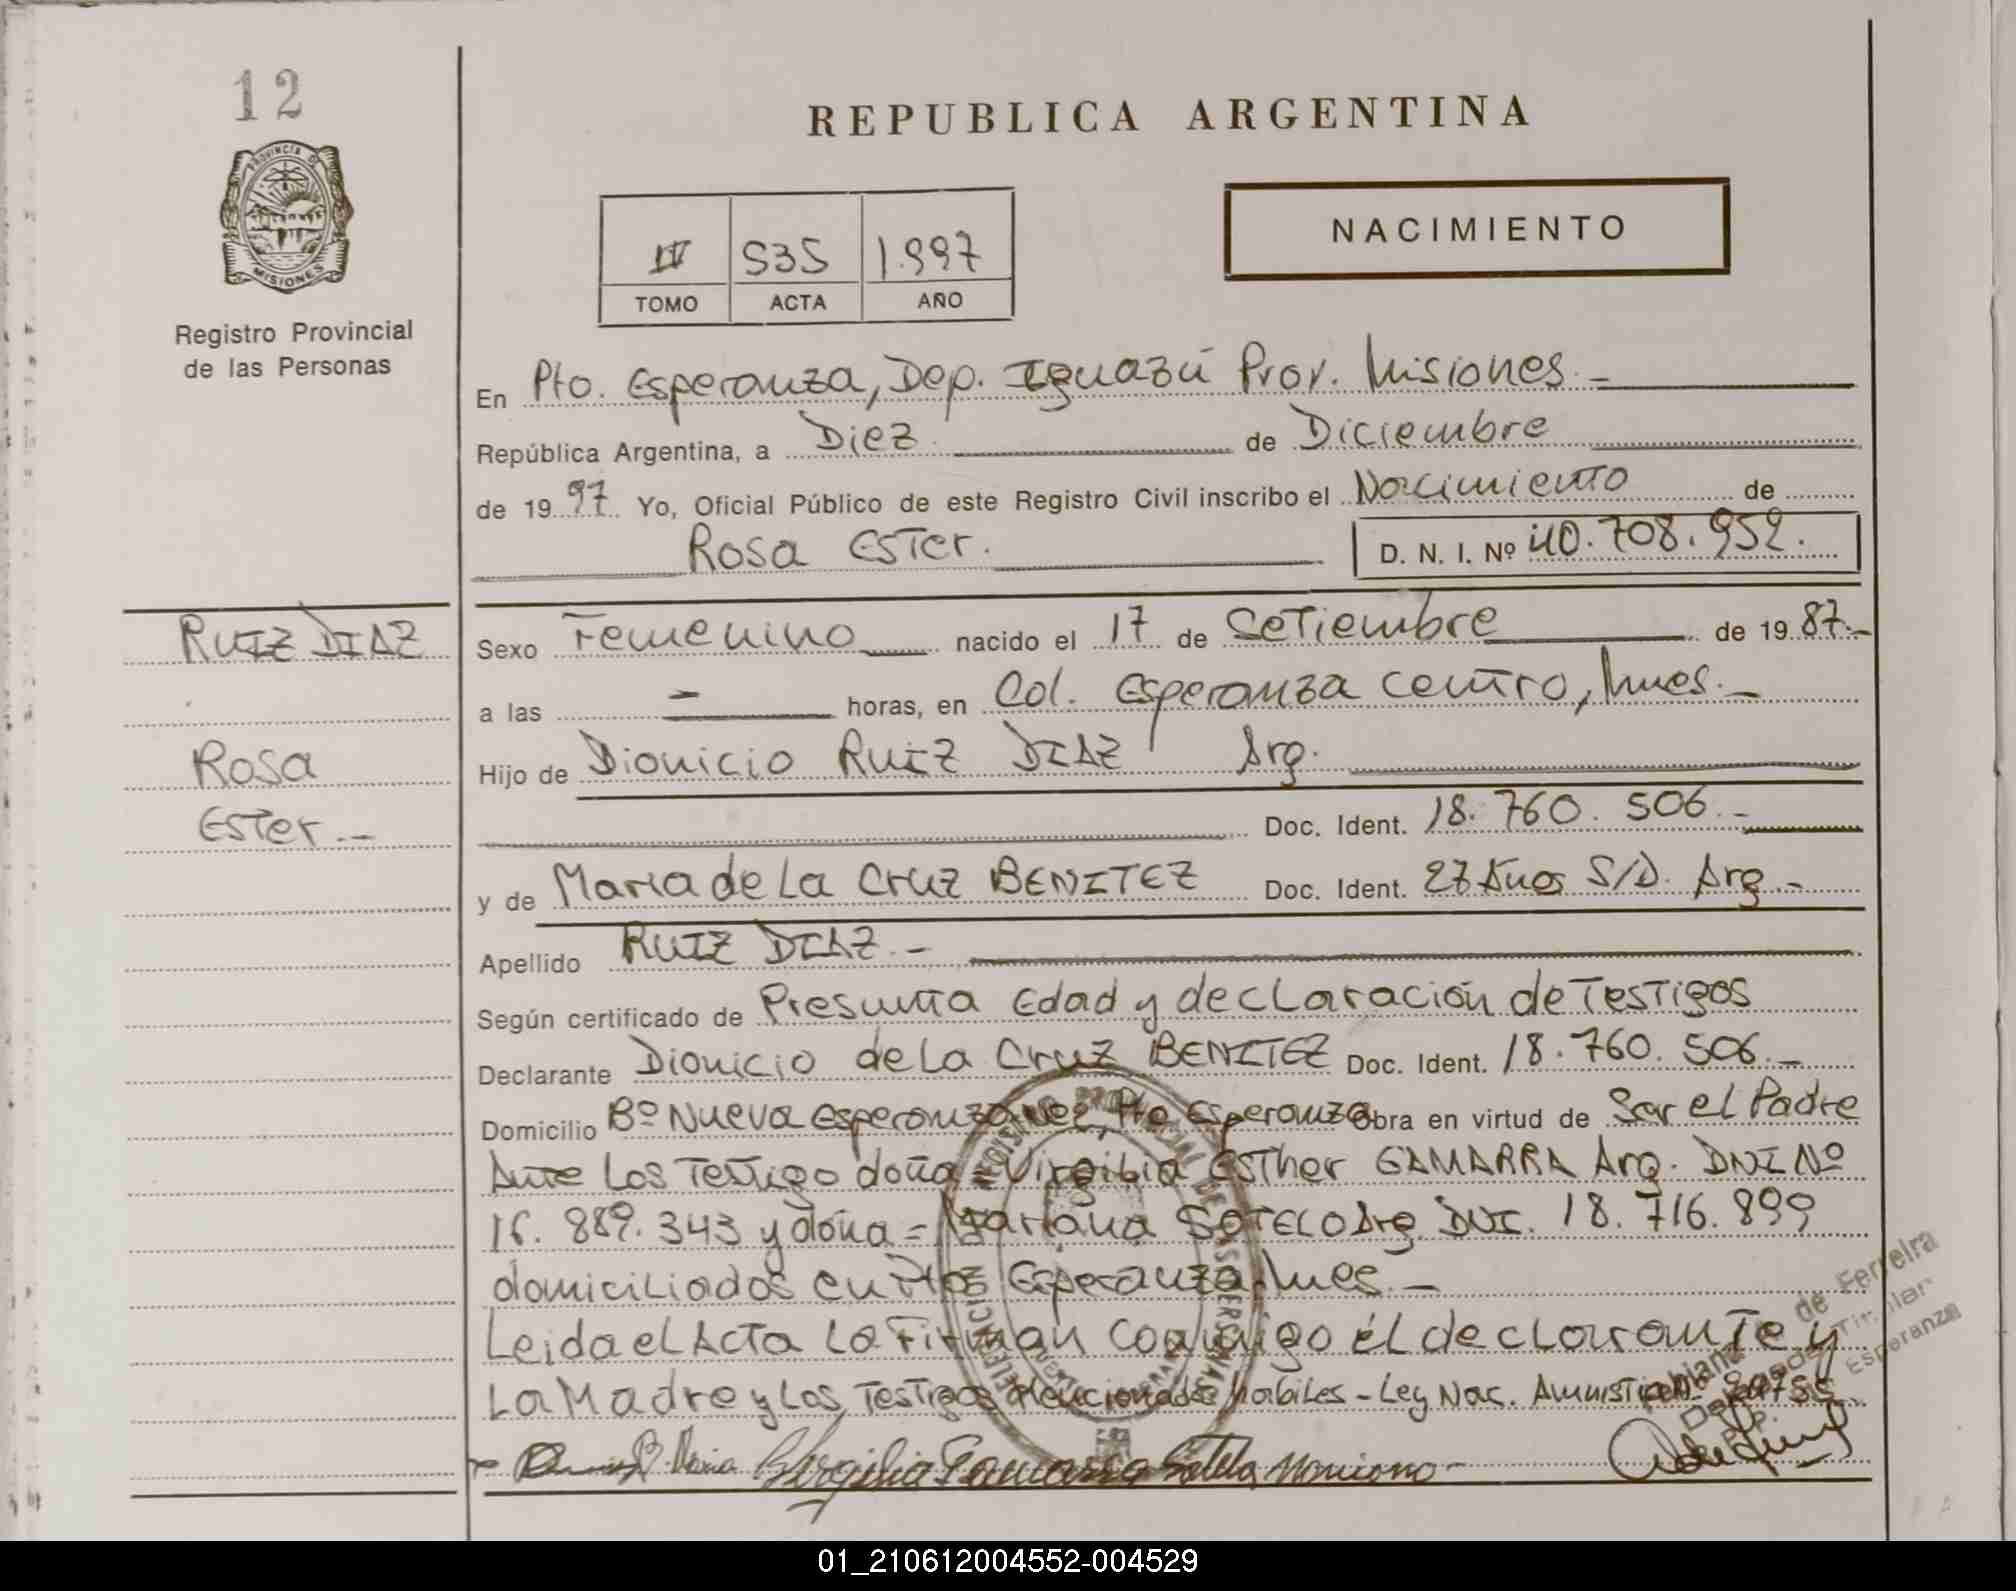 12
REPUBLICA ARGENTINA
PROVINCIA DE
MISIONES
Registro Provincial
de las Personas
NACIMIENTO
535 1.997
TOMO ACTA AÑO
En Pto. Esperanza, Dep. Iguazú Prov. Misiones.-
República Argentina, a Diez de Diciembre
de 1997 Yo, Oficial Público de este Registro Civil inscribo el Nacimiento de
Rosa Ester. D. N. I. Nº 40.708.952.
RUIZ DIAZ
Rosa
Ester.-
Sexo Femenino nacido el 17 de Setiembre de 1987.-
a las - horas, en Col. Esperanza Centro, Mnes.-
Hijo de Dionicio RUIZ DIAZ Arg.
Doc. Ident. 18.760.506.-
y de Maria de La Cruz BENITEZ Doc. Ident. 27 Años S/D. Arg.-
Apellido RUIZ DIAZ.-
Según certificado de Presunta Edad y declaración de Testigos
Declarante Dionicio de La Cruz BENITEZ Doc. Ident. 18.760.506.-
Domicilio Bº Nueva Esperanza Pto Esperanza Obra en virtud de Ser el Padre
Ante Los Testigo doña = Virgilia Esther GAMARRA Arg. DNI Nº
16.889.343 y doña = Mariana SOTELO Arg. DNI. 18.716.899
domiciliados en Pto Esperanza Mnes.-
Leida el Acta La Firman Conmigo él declarante y
La Madre y Los Testigos Mencionados habiles - Ley Nac. Amnistia
Maria Birgilia Gamarra Sotelo Mariana
de Ferreira
Titular
Esperanza
01_210612004552-004529